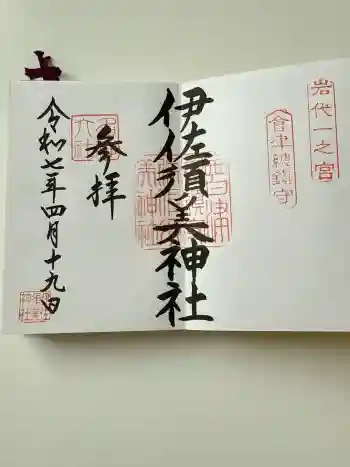 岩代一之宮
會津總鎮守
伊佐須美神社
参拝
令和七年四月十九日